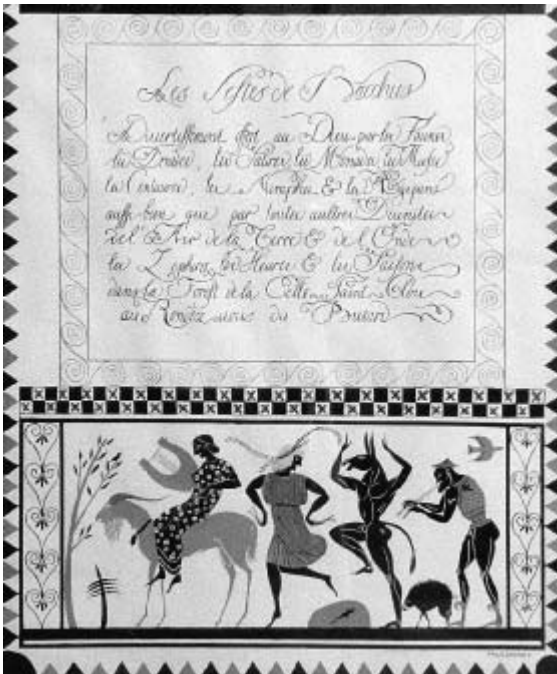 Les Festes de Bacchus
Divertissement au Dieu par les Faunes
les les Satires les les
les Centaures, les Nimphes & les
aussi bien que par toutes aultres
de l'Air de la Terre & de l'Onde
les Zephirs, les Heures & les Saisons
dans la Forest de la Celle Saint Clou
au Rendez-vous du